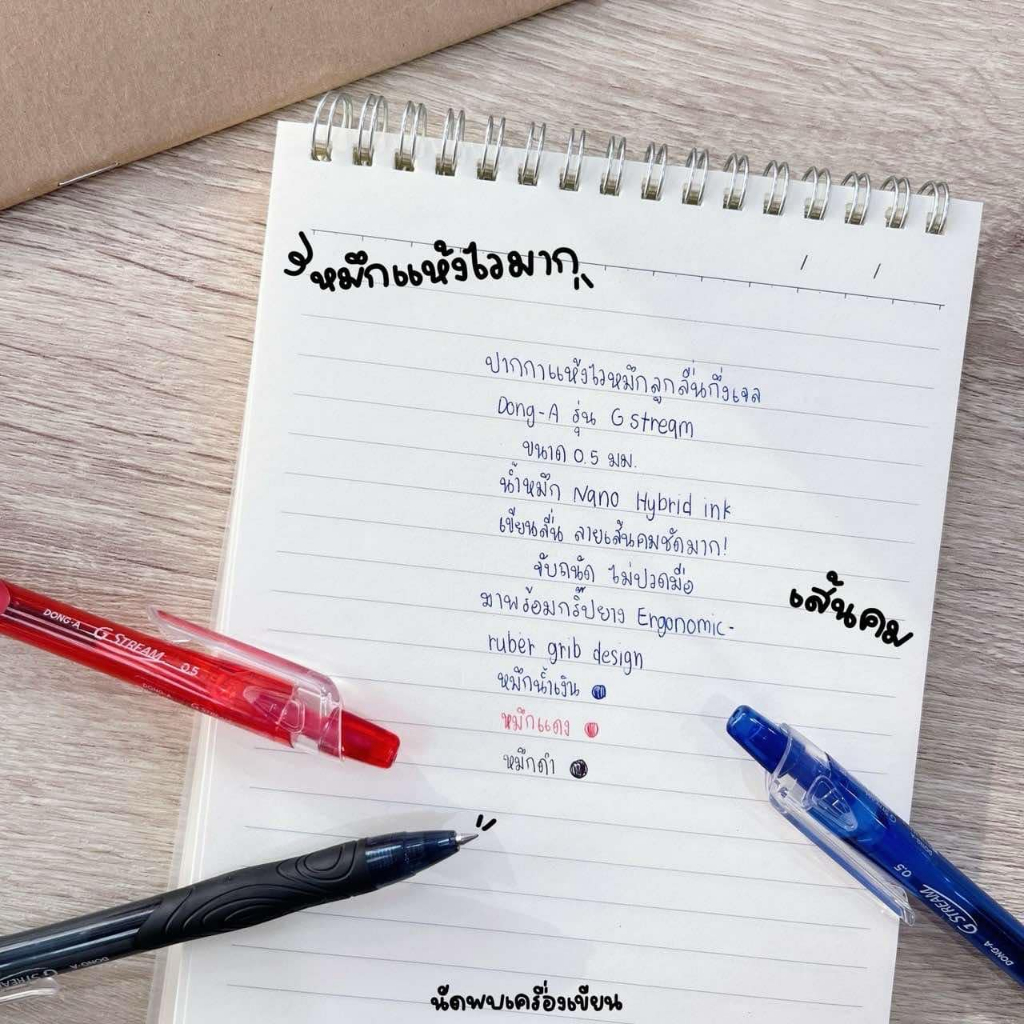 หมึกแห้งไวมาก
ปากกาแห้งไวหมึกลูกลื่นกึ่งเจล
Dong-A รุ่น G stream
ขนาด 0.5 มม.
น้ำหมึก Nano Hybrid ink
เขียนลื่น ลายเส้นคมชัดมาก!
จับถนัด ไม่ปวดมือ
มาพร้อมกริ๊ปยาง Ergonomic-
ruber grib design
หมึกน้ำเงิน
หมึกแดง
หมึกดำ
เส้นคม
DONG-A G STREAM 0.5
0.5 G STREAM DONG-A
DONG-A G STREAM
นัดพบเครื่องเขียน